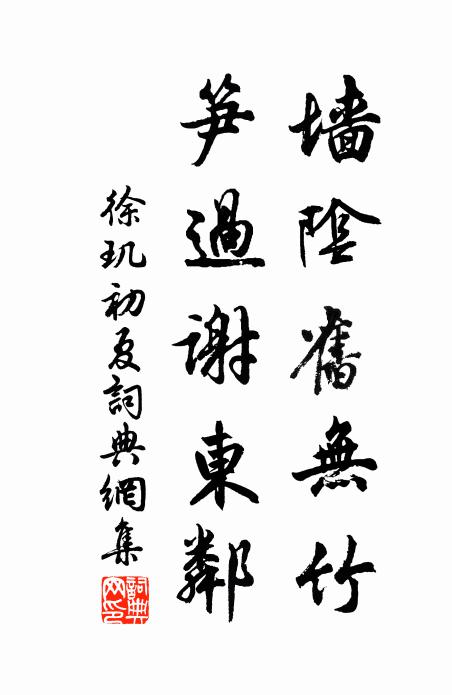 墙陰舊無竹
笋過謝東鄰
徐玑初夏詞典網集
詞典網印